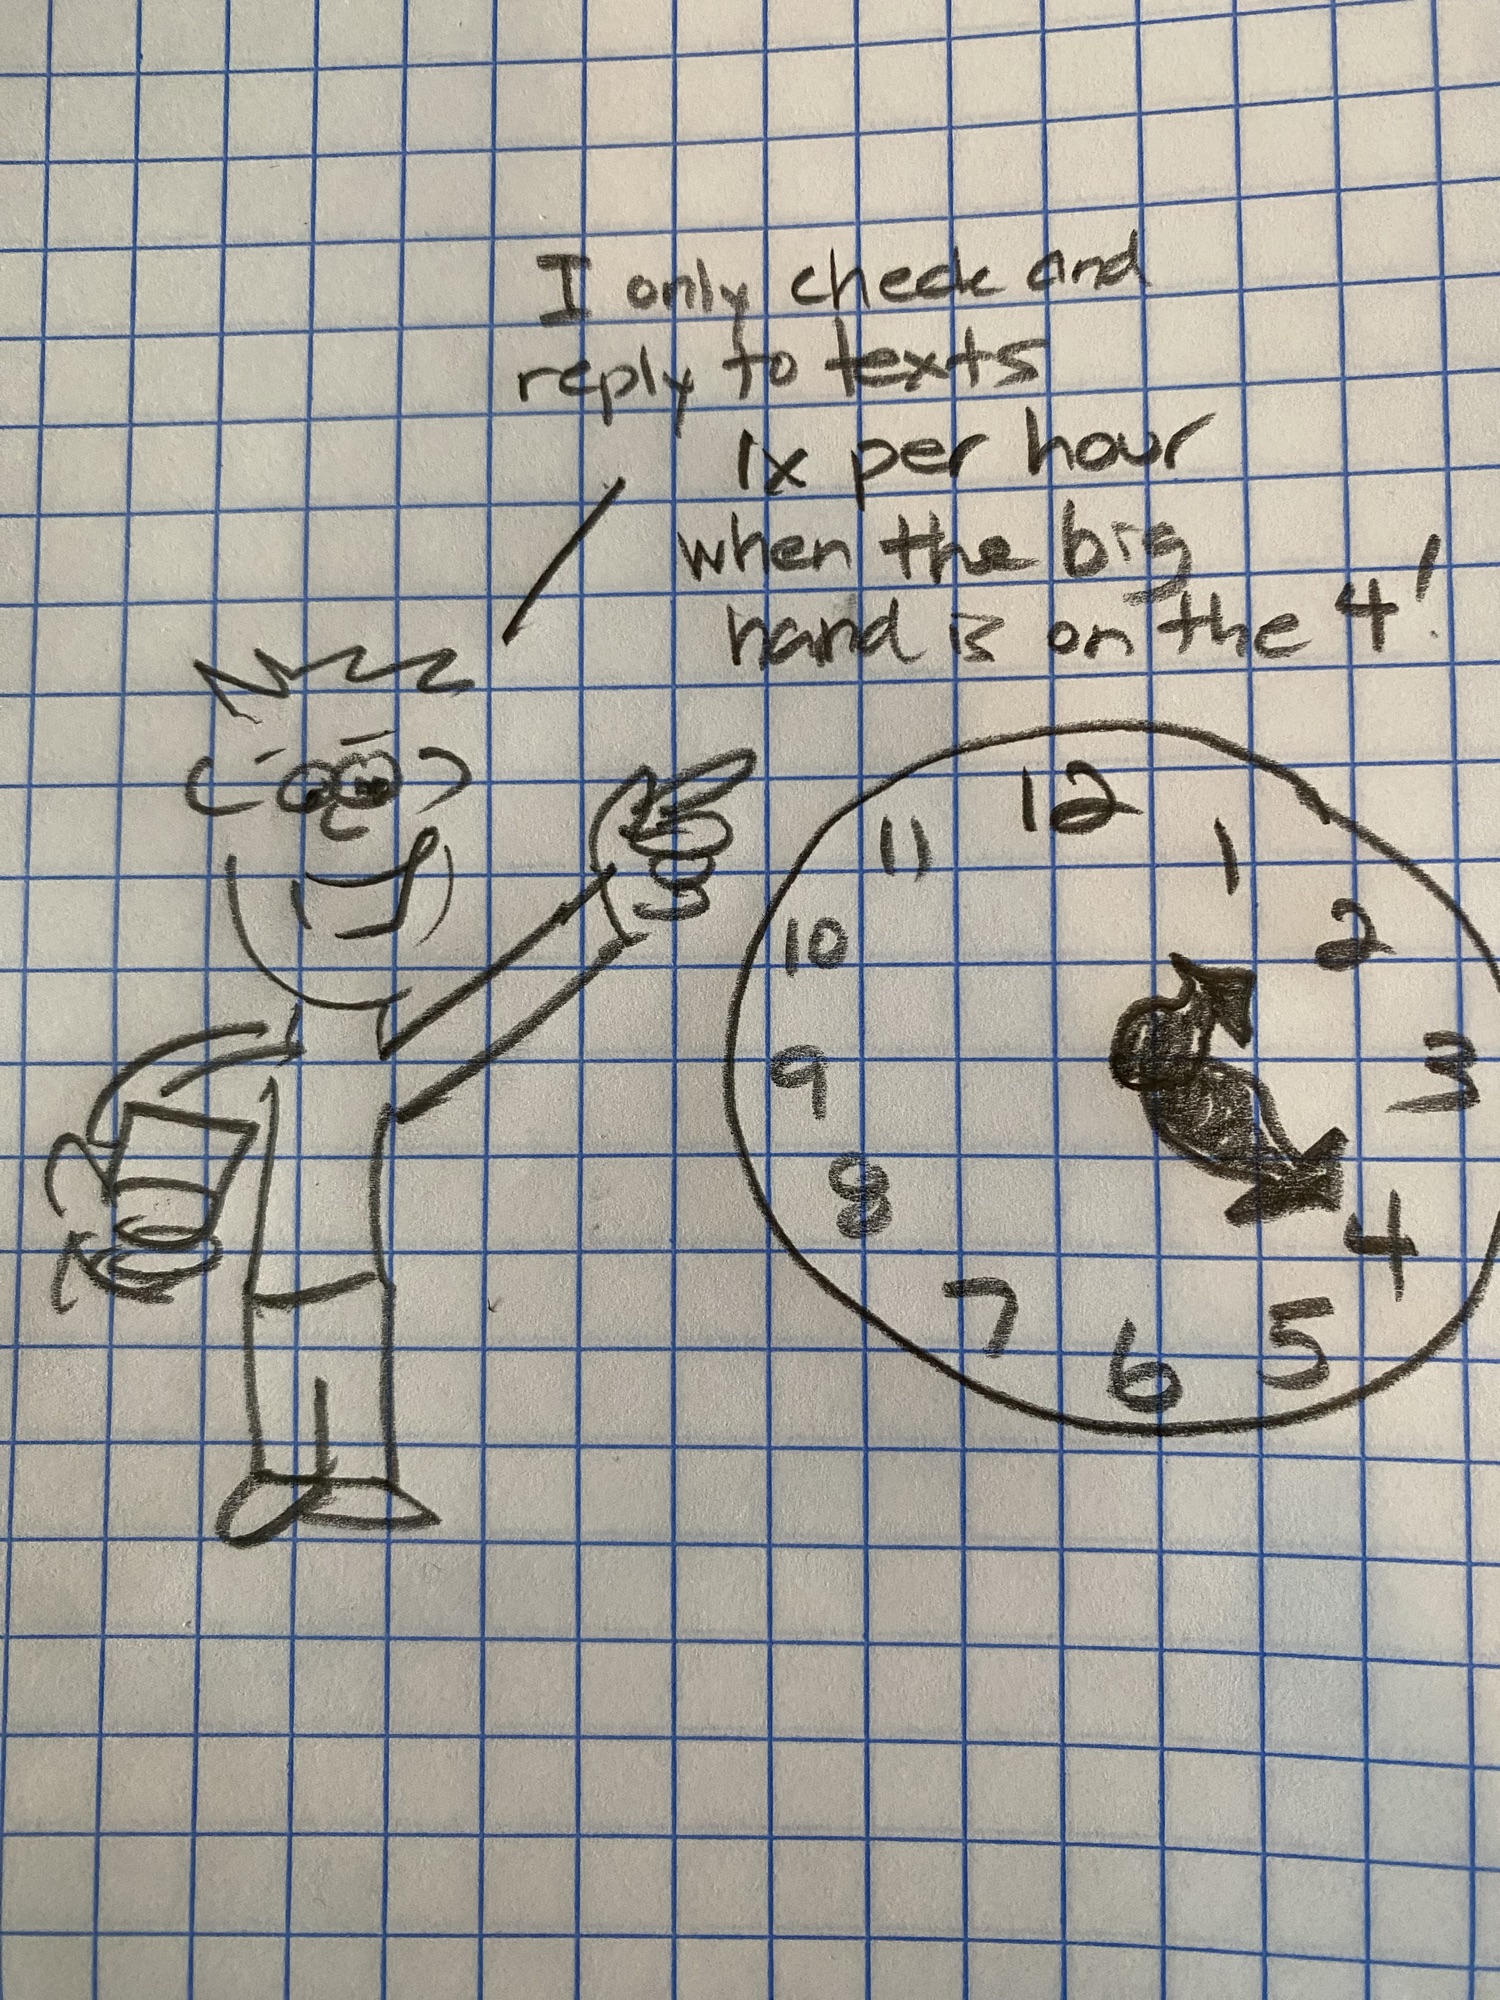 I only check and
reply to texts
1x per hour
when the big
hand is on the 4!
12
11
1
10
2
9
3
8
4
7
5
6